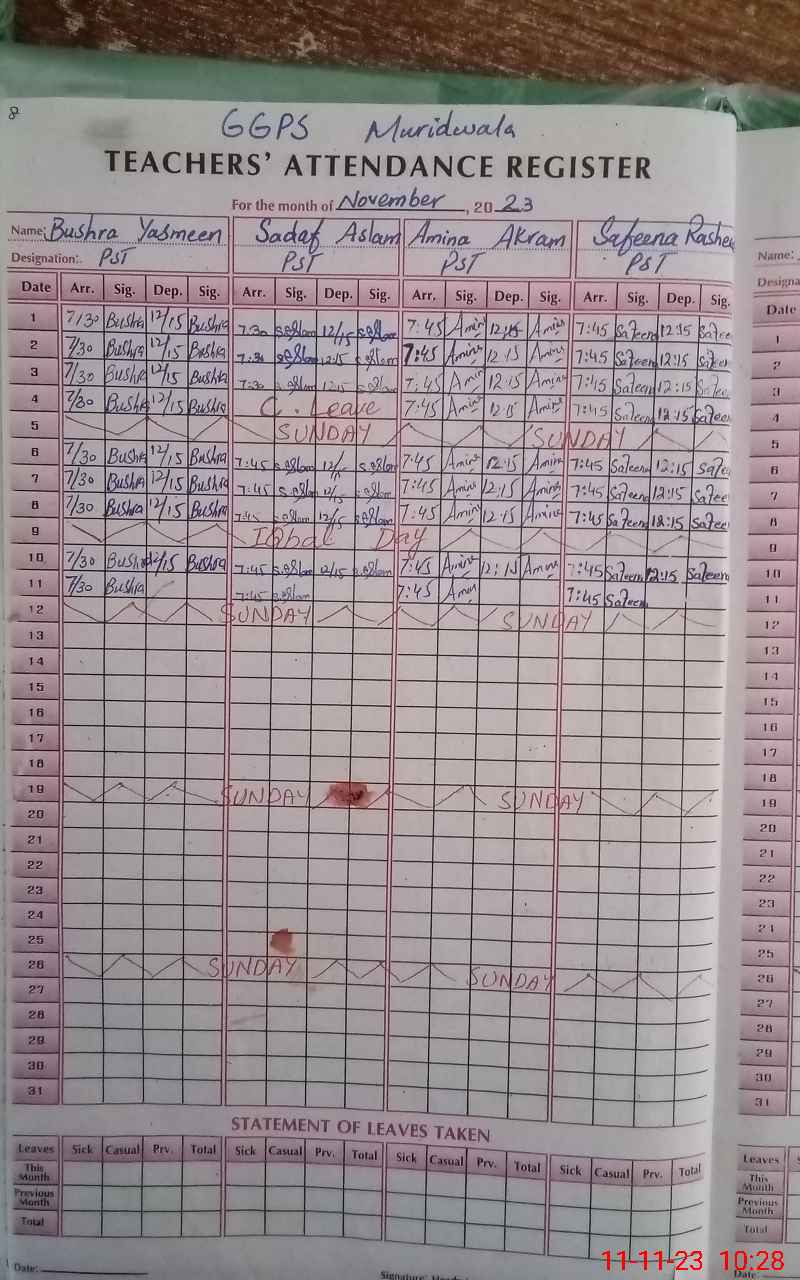 8
GGPS Muridwala
TEACHERS' ATTENDANCE REGISTER
For the month of November, 2023
Name: Bushra Yasmeen Sadaf Aslam Amina Akram Safeena Rashee Name:
Designation: PST PST PST PST Designa
Date Arr. Sig. Dep. Sig. Arr. Sig. Dep. Sig. Arr. Sig. Dep. Sig. Arr. Sig. Dep. Sig. Date
1 7/30 Bushra 12/15 Bushra 7:30 12/15 7:45 Amin 12:15 Amina 7:45 Safeen 12:15 Safee 1
2 7/30 Bushra 12/15 Bushra 7:30 12:15 7:45 Amina 12:15 Amina 7:45 Safeen 12:15 Safee 2
3 7/30 Bushra 12/15 Bushra 7:30 12:15 7:45 Amin 12:15 Amina 7:45 Safeen 12:15 Safee 3
4 7/30 Bushra 12/15 Bushra C. Leave 7:45 Amina 12:15 Amina 7:45 Safeen 12:15 Safee 4
5 SUNDAY SUNDAY 5
6 7/30 Bushra 12/15 Bushra 7:45 7:45 Amina 12:15 Amina 7:45 Safeena 12:15 Safee 6
7 7/30 Bushra 12/15 Bushra 7:45 7:45 Amina 12:15 Amina 7:45 Safeena 12:15 Safee 7
8 7/30 Bushra 12/15 Bushra 7:45 12/15 7:45 Amina 12:15 Amina 7:45 Safeen 12:15 Safee 8
9 Iqbal Day 9
10 7/30 Bushra 12/15 Bushra 7:45 12/15 7:45 Amina 12:15 Amina 7:45 Safeena 12:15 Safeena 10
11 7/30 Bushra 7:45 7:45 Amin 7:45 Safeen 11
12 SUNDAY SUNDAY 12
13 13
14 14
15 15
16 16
17 17
18 18
19 SUNDAY SUNDAY 19
20 20
21 21
22 22
23 23
24 24
25 25
26 SUNDAY SUNDAY 26
27 27
28 28
29 29
30 30
31 31
STATEMENT OF LEAVES TAKEN
Leaves Sick Casual Prv. Total Sick Casual Prv. Total Sick Casual Prv. Total Sick Casual Prv. Total Leaves
This Month This Month
Previous Month Previous Month
Total Total
Date: Signature: Date:
11-11-23 10:28